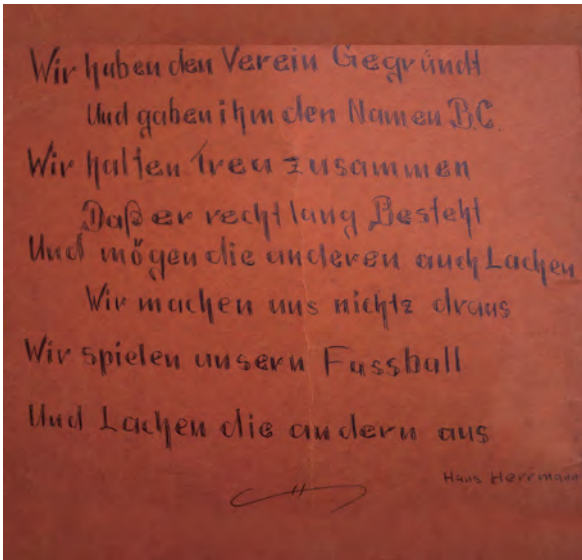 Wir haben den Verein Gegründt
Und gaben ihm den Namen B.C.
Wir halten treu zusammen
Daß er recht lang Besteht
Und mögen die anderen auch Lachen
Wir machen uns nichtz draus
Wir spielen unsern Fussball
Und Lachen die andern aus
Hans Herrmann